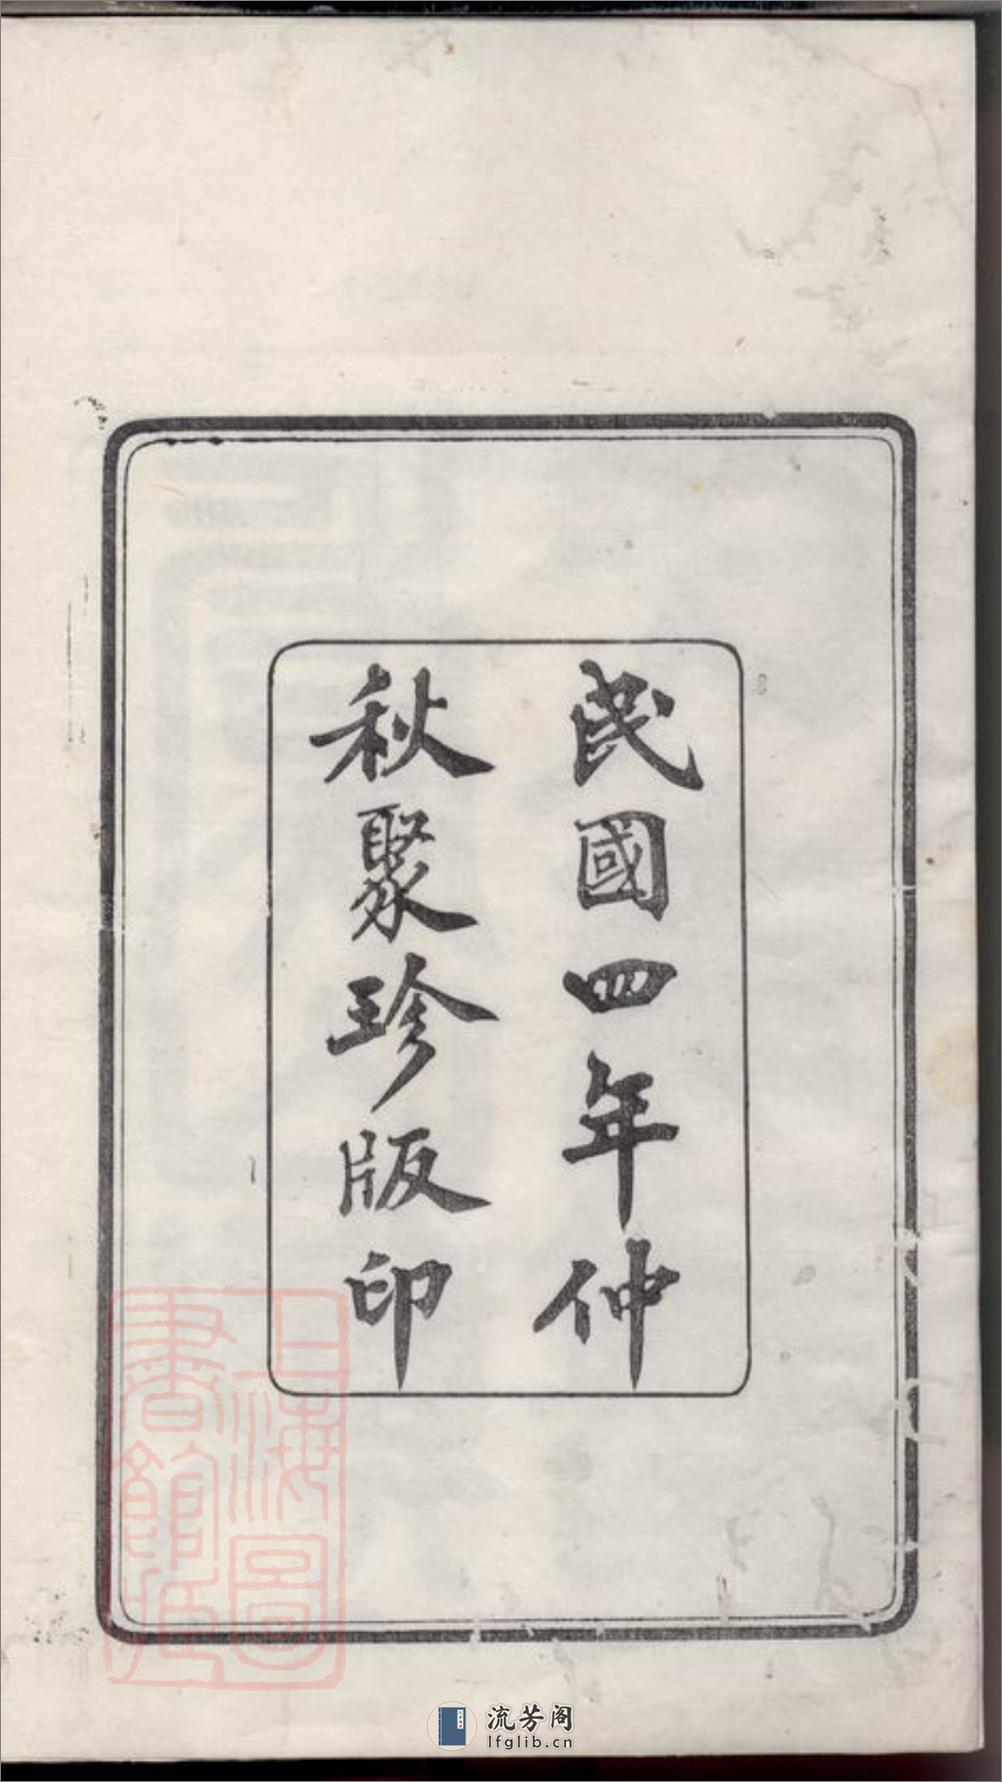 民國四年仲
秋聚珍版印
上海圖
書館藏
流芳阁
lfglib.cn